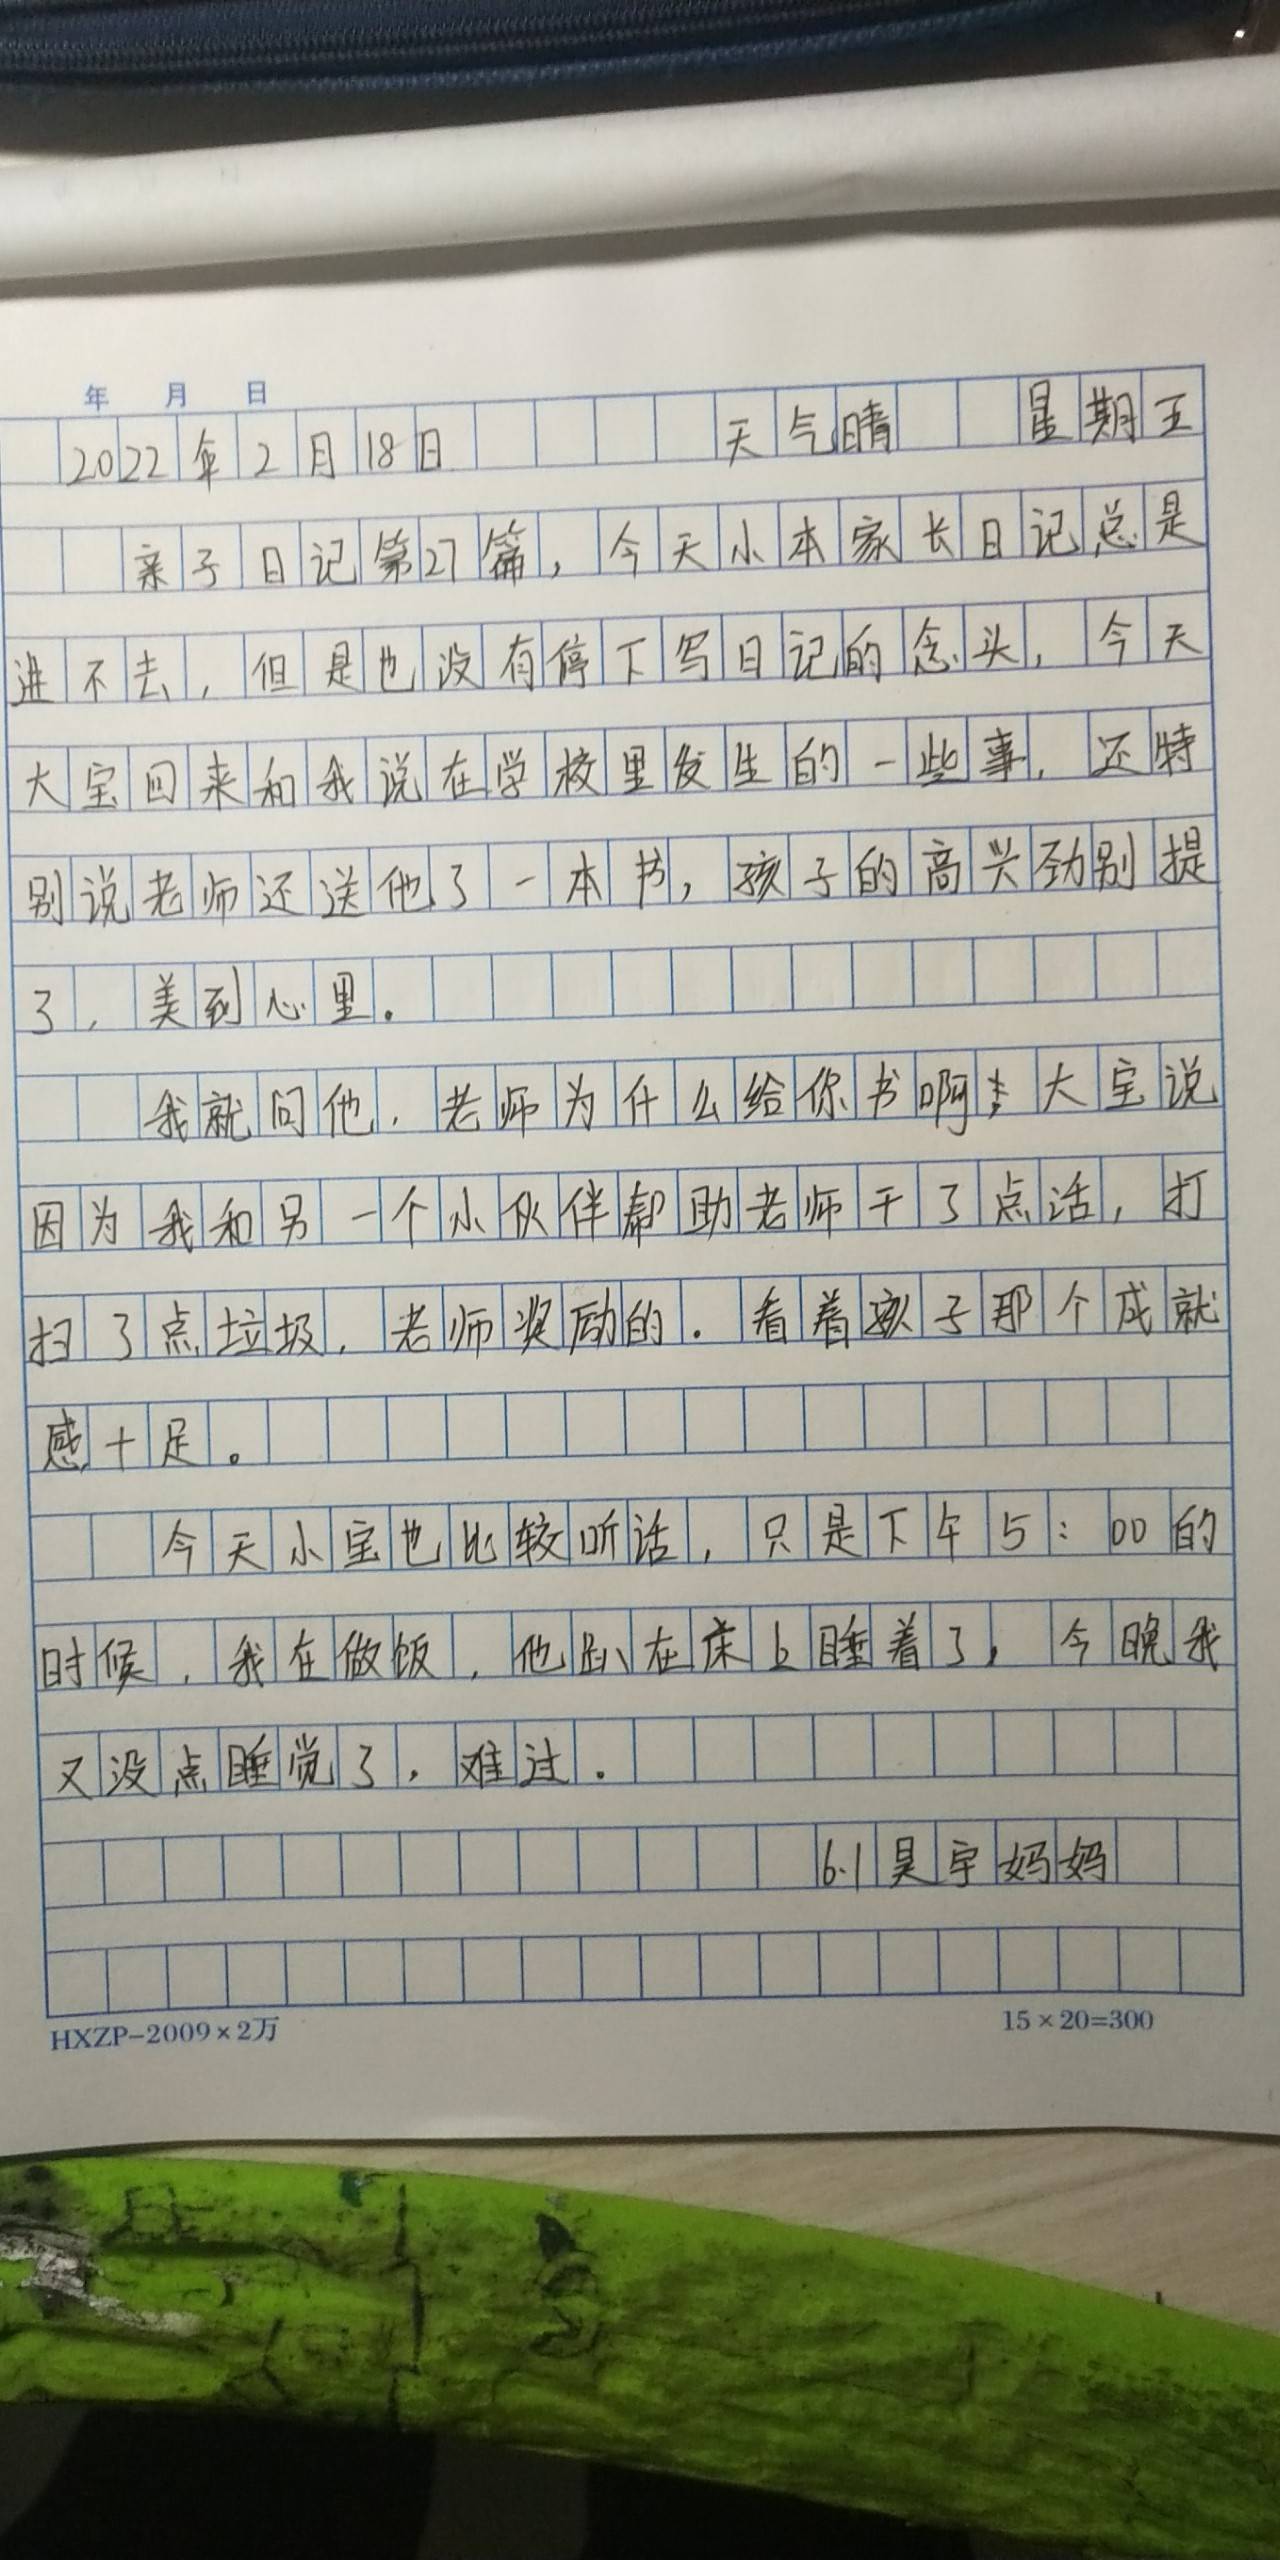 年 月 日
2022年2月18日 天气晴 星期五
亲子日记第27篇，今天小本家长日记总是
进不去，但是也没有停下写日记的念头，今天
大宝回来和我说在学校里发生的一些事，还特
别说老师还送他了一本书，孩子的高兴劲别提
了，美到心里。
我就问他，老师为什么给你书啊，大宝说
因为我和另一个小伙伴帮助老师干了点活，打
扫了点垃圾，老师奖励的。看着孩子那个成就
感十足。
今天小宝也比较听话，只是下午5：00的
时候，我在做饭，他趴在床上睡着了，今晚我
又没点睡觉了，难过。
6.1昊宇妈妈
HXZP-2009×2万 15×20=300